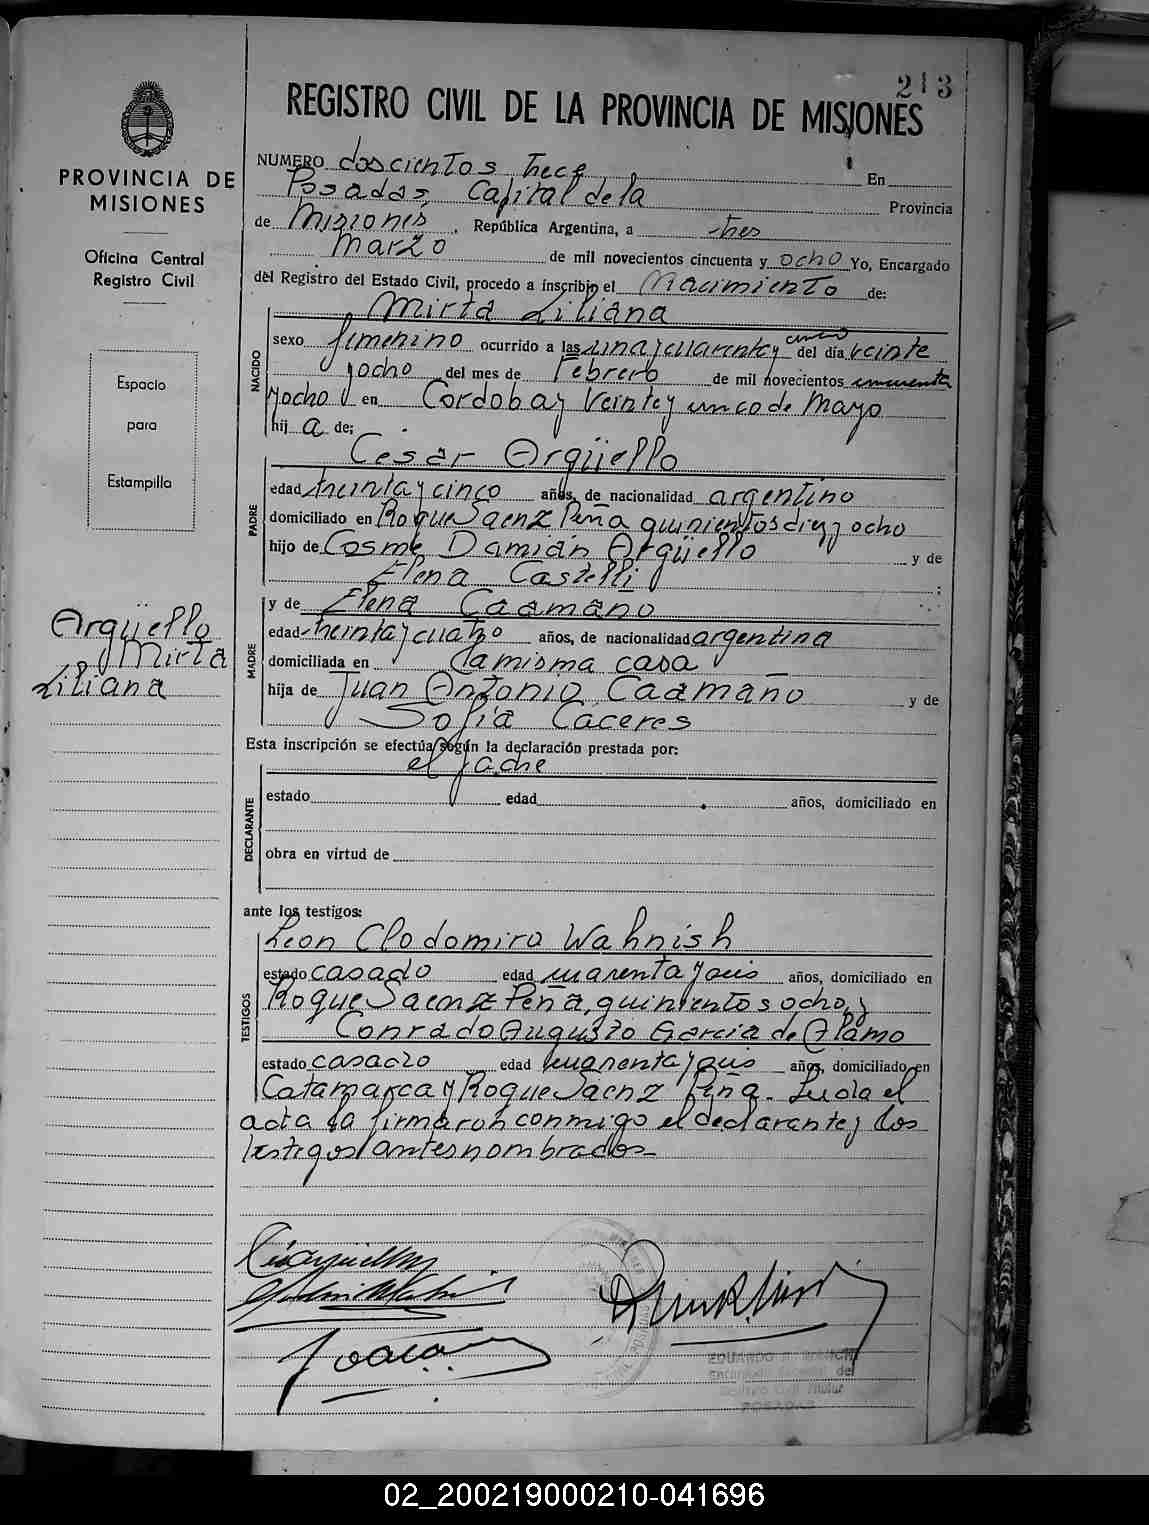 213
REGISTRO CIVIL DE LA PROVINCIA DE MISIONES
PROVINCIA DE
MISIONES
Oficina Central
Registro Civil
Espacio
para
Estampilla
Argüello
Mirta
Liliana
NUMERO doscientos trece En
Posadas, Capital de la Provincia
de Misiones, República Argentina, a tres
Marzo de mil novecientos cincuenta y ocho Yo, Encargado
del Registro del Estado Civil, procedo a inscribir el Nacimiento de:
Mirta Liliana
NACIDO
sexo femenino ocurrido a las una y cuarenta y cinco del día veinte
y ocho del mes de Febrero de mil novecientos cincuenta
y ocho en Cordoba y Veinte y cinco de Mayo
hij a de:
Cesar Argüello
PADRE
edad treinta y cinco años, de nacionalidad argentino
domiciliado en Roque Saenz Peña quinientos diez y ocho
hijo de Cosme Damián Argüello y de
Elena Castelli ;
y de Elena Caamaño
MADRE
edad treinta y cuatro años, de nacionalidad argentina
domiciliada en la misma casa
hija de Juan Antonio Caamaño y de
Sofia Caceres
Esta inscripción se efectúa según la declaración prestada por:
el padre
DECLARANTE
estado edad años, domiciliado en
obra en virtud de
ante los testigos:
Leon Clodomiro Wahnish
TESTIGOS
estado casado edad cuarenta y seis años, domiciliado en
Roque Saenz Peña, quinientos ocho y
Conrado Augusto Garcia de Alamo
estado casado edad cuarenta y seis años, domiciliado en
Catamarca y Roque Saenz Peña. Leida el
acta la firmaron conmigo el declarante y los
testigos antes nombrados
02_200219000210-041696